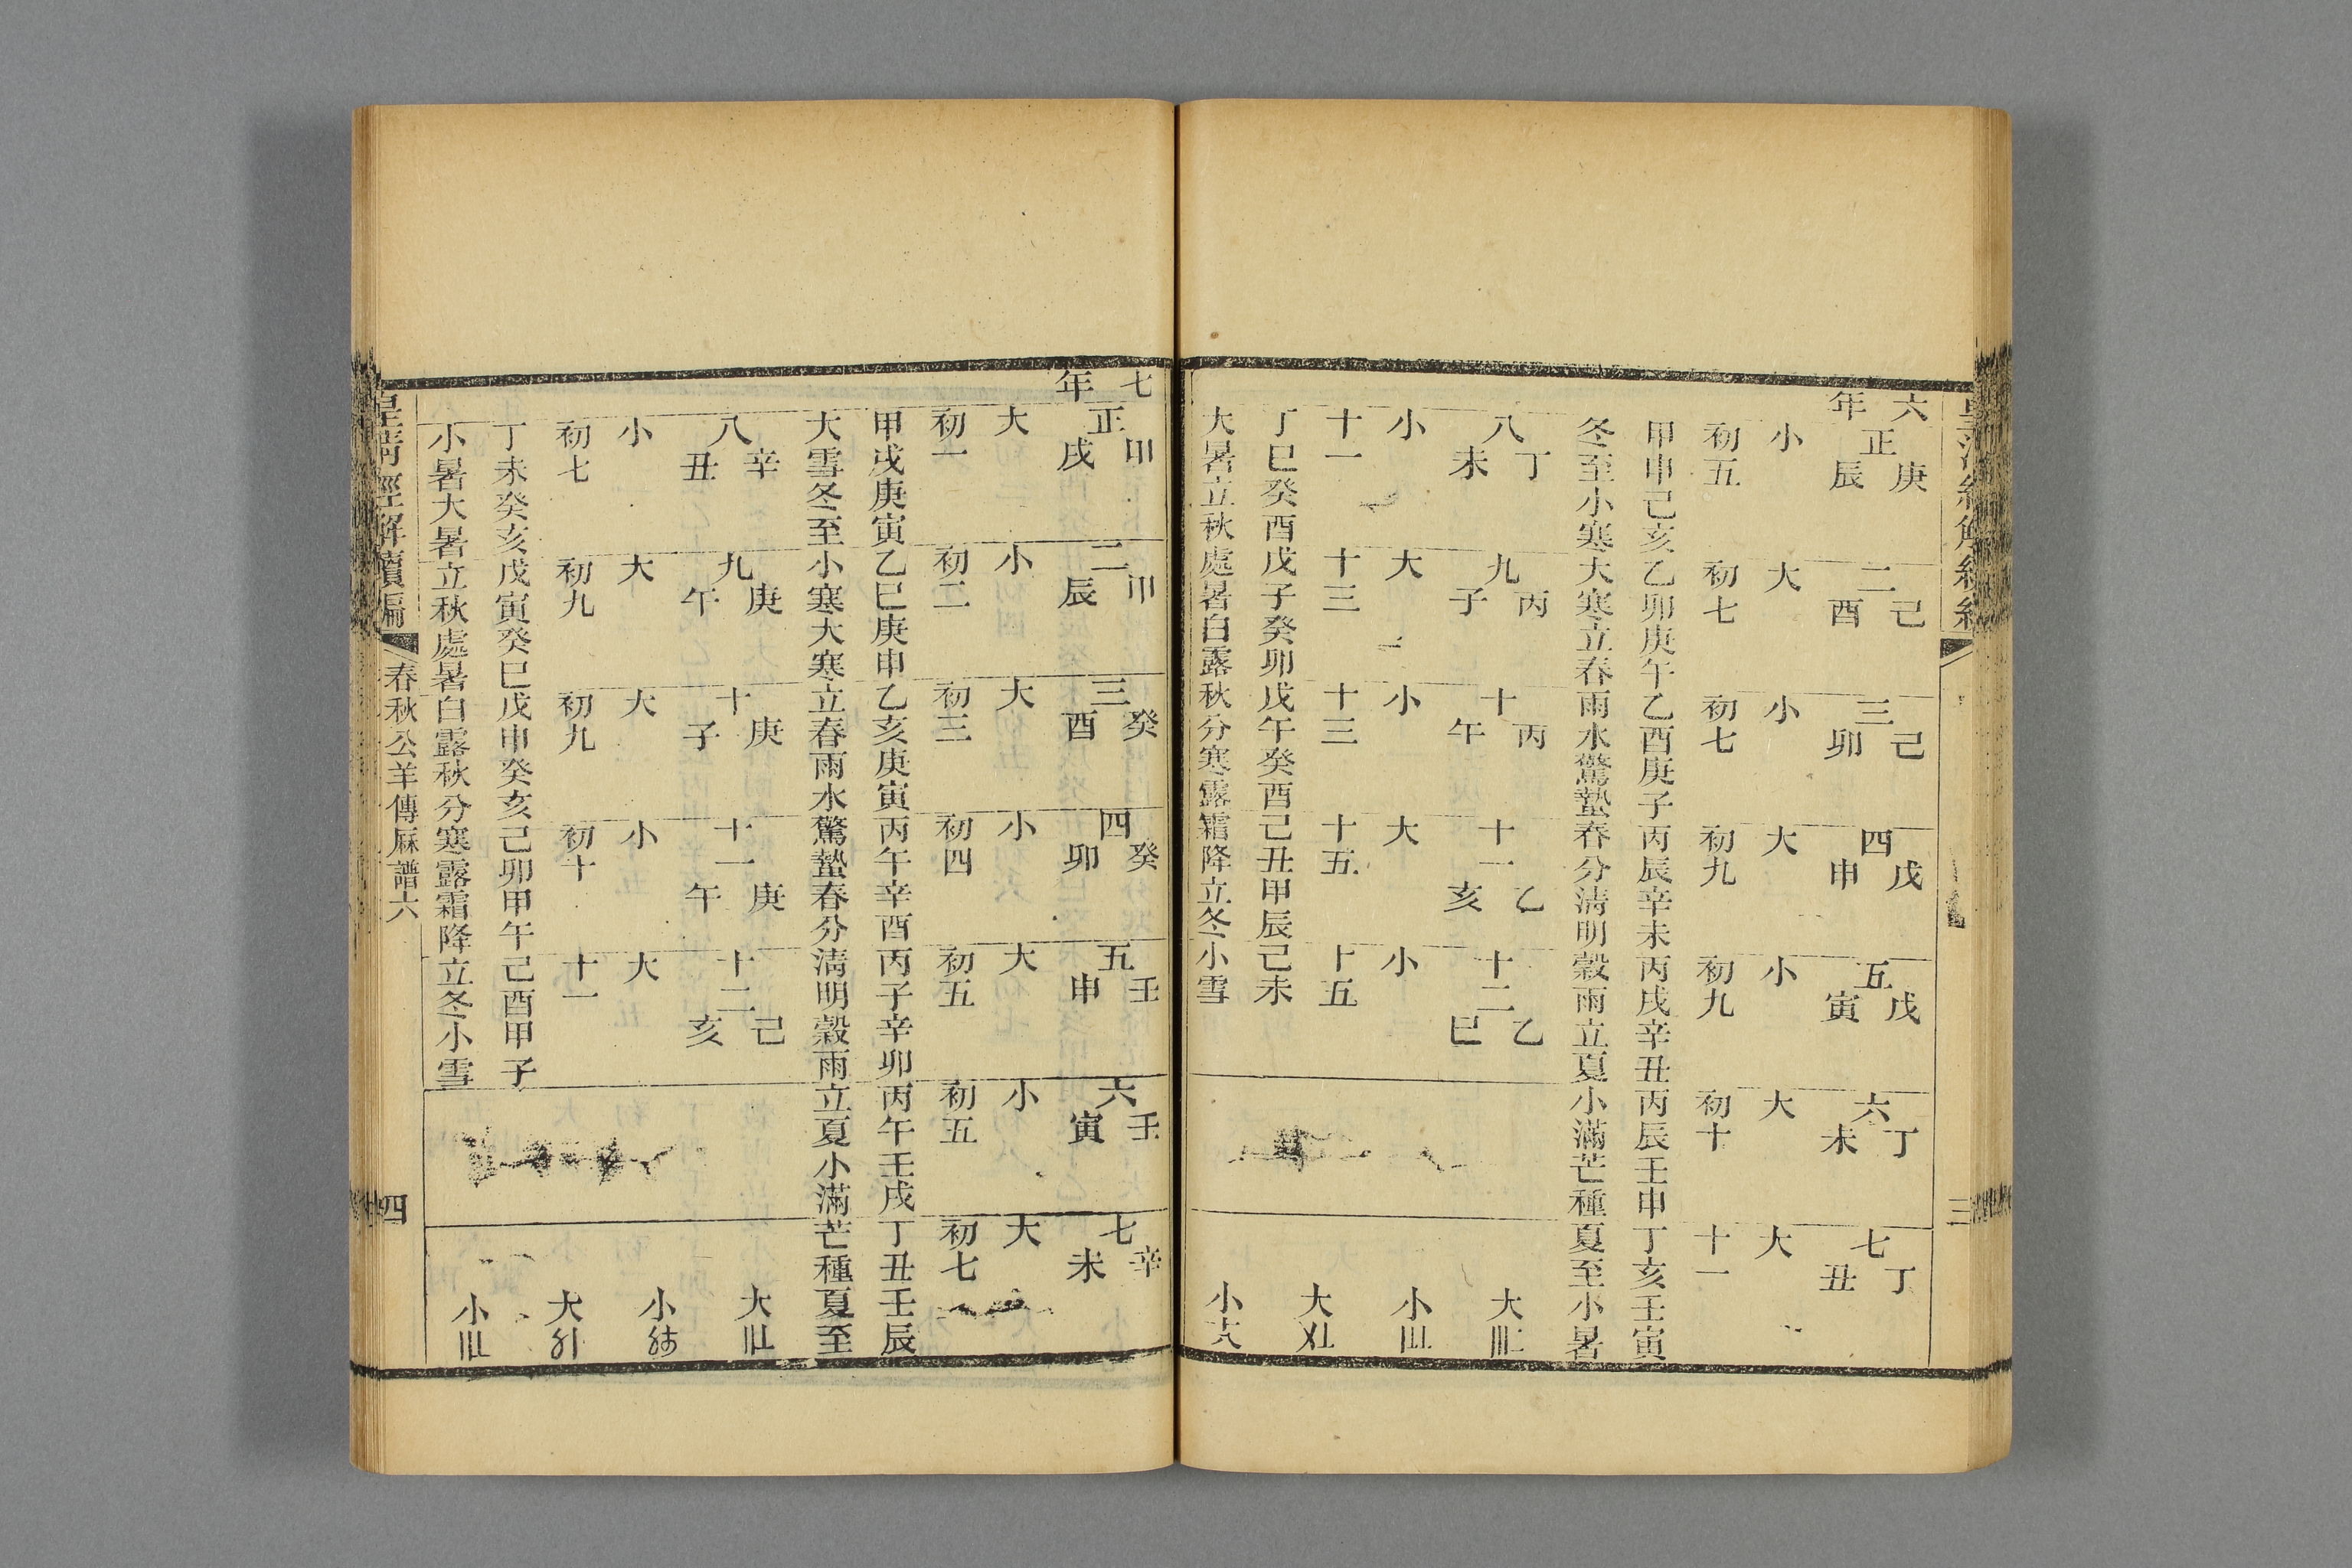 六年
正 庚辰
二 己酉
三 己卯
四 戊申
五 戊寅
六 丁未
七 丁丑
小 大 小 大 小 大 大
初五 初七 初七 初九 初九 初十 十一
甲申己亥乙卯庚午乙酉庚子丙辰辛未丙戌辛丑丙辰壬申丁亥壬寅
冬至小寒大寒立春雨水驚蟄春分淸明穀雨立夏小滿芒種夏至小暑
八 丁未
九 丙子
十 丙午
十一 乙亥
十二 乙巳
小 大 小 大 小
十一 十三 十三 十五 十五
丁巳癸酉戊子癸卯戊午癸酉己丑甲辰己未
大暑立秋處暑白露秋分寒露霜降立冬小雪
大
小
大
小
三
七年
正 戌
二 辰
三 癸酉
四 癸卯
五 壬申
六 壬寅
七 辛未
大 小 大 小 大 小 大
初一 初二 初三 初四 初五 初五 初七
甲戌庚寅乙巳庚申乙亥庚寅丙午辛酉丙子辛卯丙午壬戌丁丑壬辰
大雪冬至小寒大寒立春雨水驚蟄春分淸明穀雨立夏小滿芒種夏至
八 辛丑
九 庚午
十 庚子
十一 庚午
十二 己亥
小 大 大 小 大
初七 初九 初九 初十 十一
丁未癸亥戊寅癸巳戊申癸亥己卯甲午己酉甲子
小暑大暑立秋處暑白露秋分寒露霜降立冬小雪
大
小
大
小
皇淸經解續編
春秋公羊傳厤譜六
四